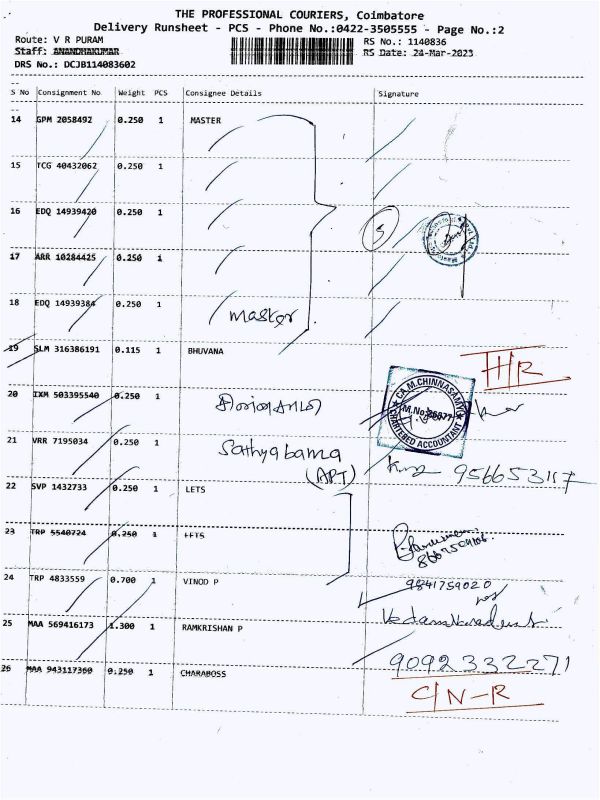 THE PROFESSIONAL COURIERS, Coimbatore
Delivery Runsheet - PCS - Phone No.:0422-3505555 - Page No.:2
Route: V R PURAM RS No.: 1140836
Staff: ANANDHAKUMAR RS Date: 24-Mar-2023
DRS No.: DCJB114083602
S No Consignment No Weight PCS Consignee Details Signature
14 GPM 2058492 0.250 1 MASTER
15 TCG 40432062 0.250 1
16 EDQ 14939420 0.250 1
5
17 ARR 10284425 0.250 1
18 EDQ 14939384 0.250 1 master
19 SLM 316386191 0.115 1 BHUVANA
20 IXM 503395540 0.250 1
CA.M.CHINNASAMY
M.No.
CHARTERED ACCOUNTANT
21 VRR 7195034 0.250 1 Sathyabama
(APT)
22 SVP 1432733 0.250 1 LETS
23 TRP 5540724 0.250 1 LETS
24 TRP 4833559 0.700 1 VINOD P 9841759020
25 MAA 569416173 1.300 1 RAMKRISHAN P
9092332271
26 MAA 943117360 0.250 1 CHARABOSS C/N-R